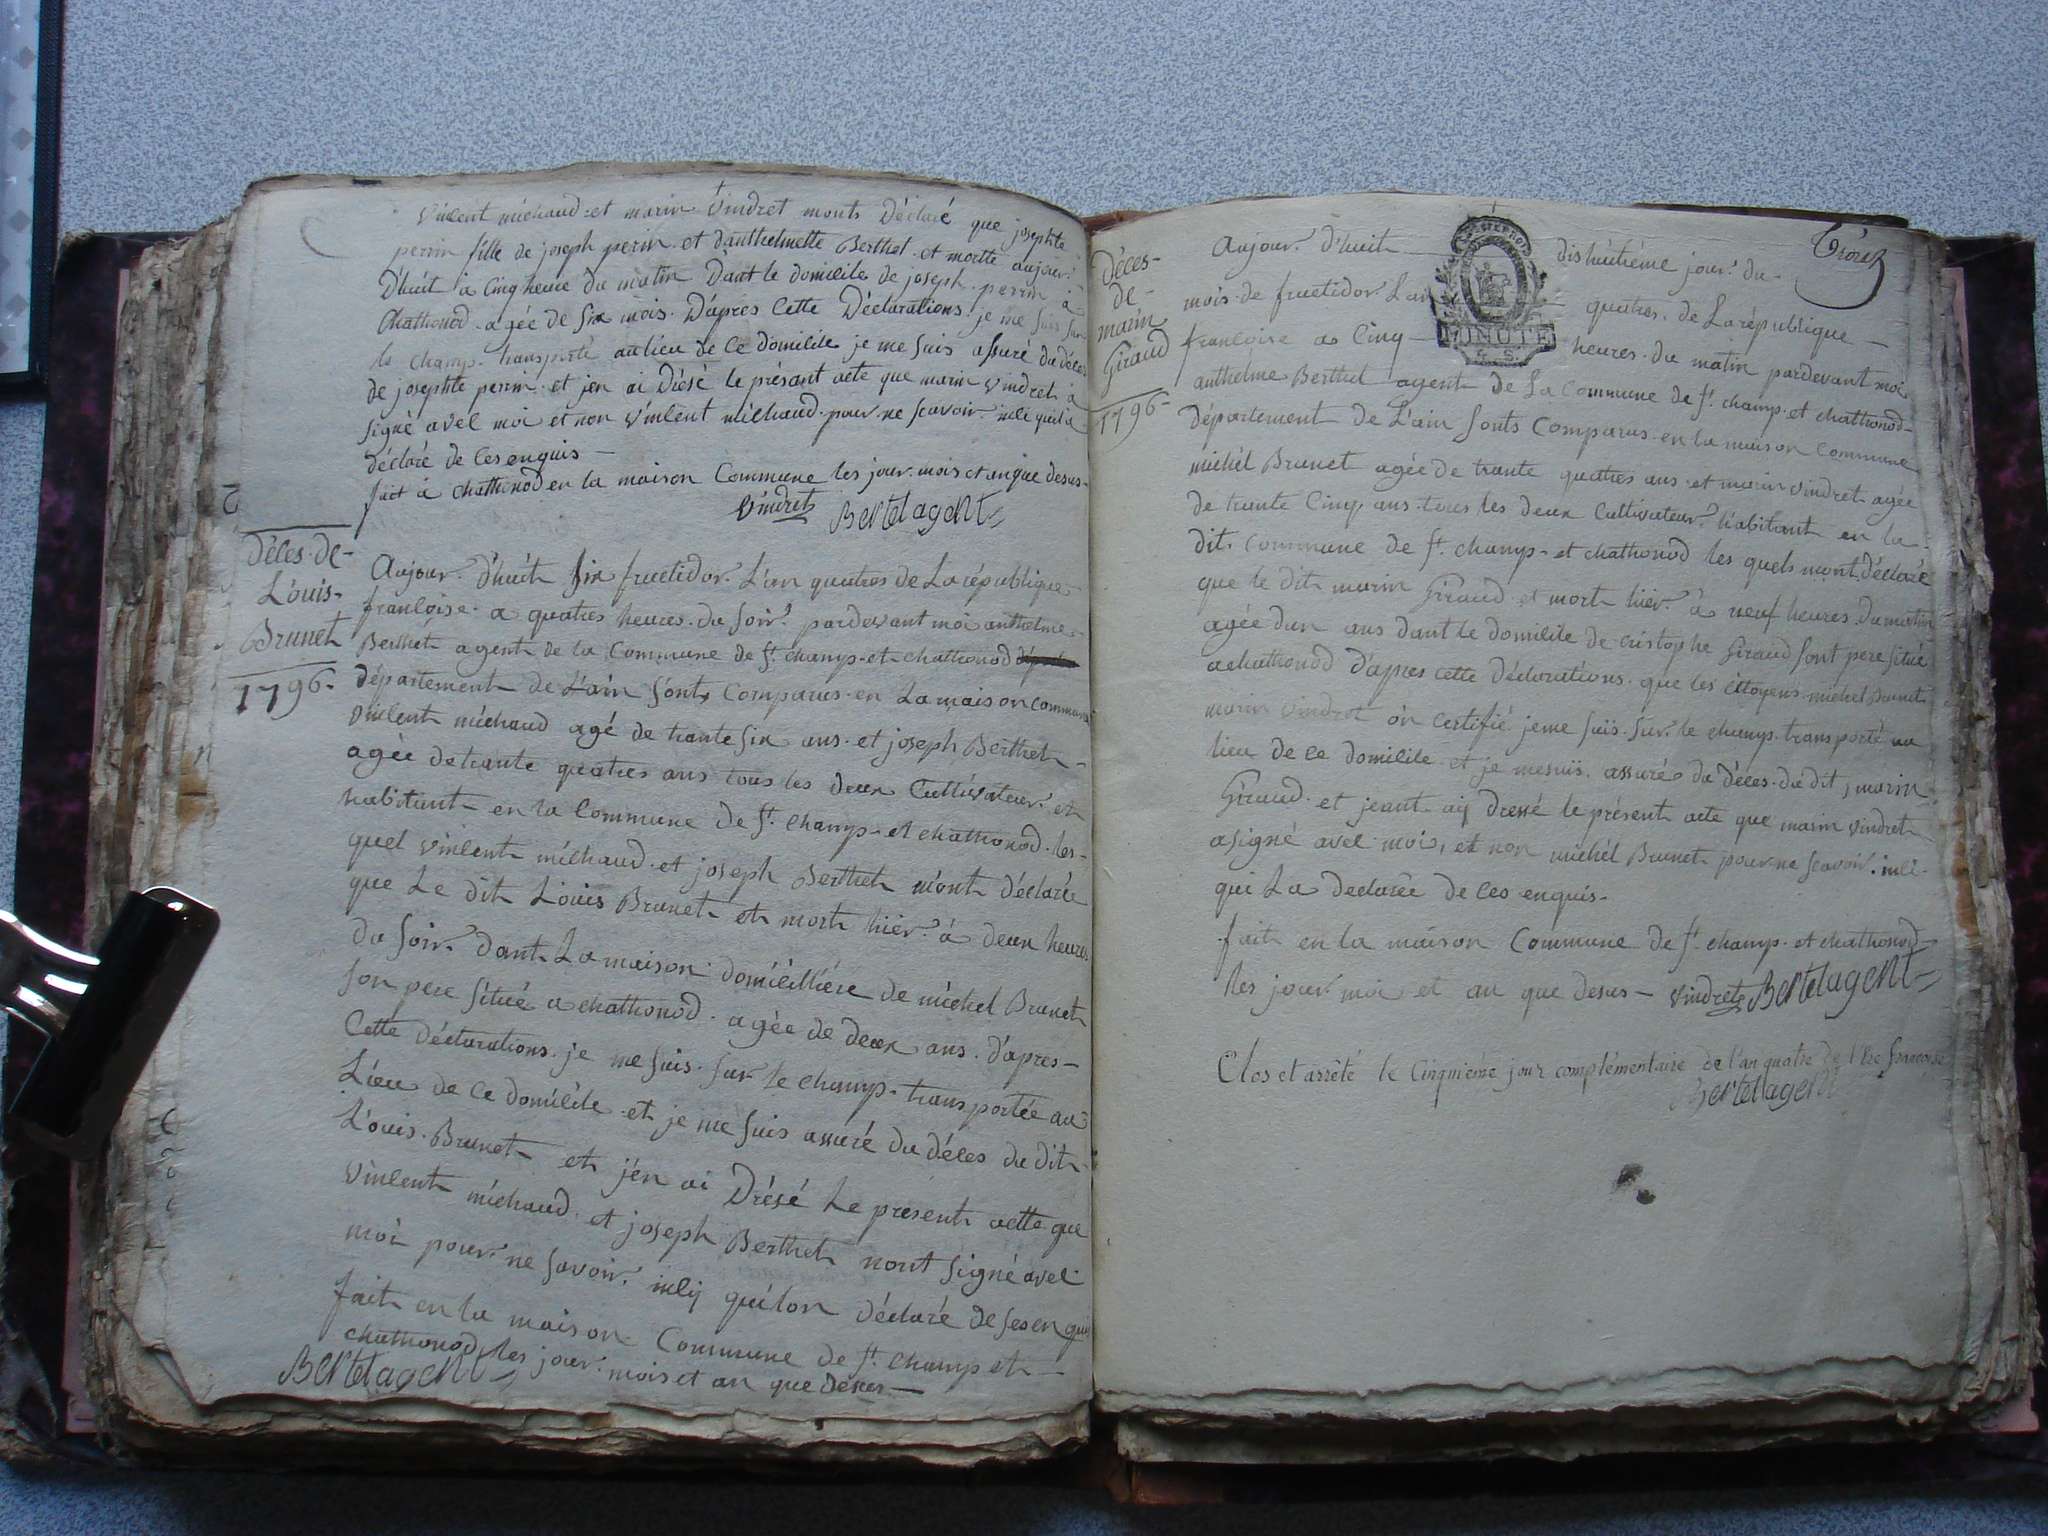 Vinlent michaud et marin Vindret monts Déclaré que josephte
perrin fille de joseph perin et danthelmette Berthet et mortte aujour
D'huit à Cinq heure du matin Dant le domicile de joseph perrin à
Chathonod agée de six mois D'apres Cette Déclarations je me suis sur
le champ transporté aulieu de Ce domilile je me suis assuré du déces
de josephte perrin et jen ai Drésé le présant acte que marin vindret à
signé avel moi et non Vinlent milhaud pour ne scavoir
déclaré de Ces enquis
fait à chathonod en la maison Commune les jour mois et an que desus
Vindret Bertet agent
Déces de
Louis
Brunet
1796
Aujour d'huit six fructidor L'an quatres de La république
franloise a quatres heures du soir pardevant moi anthelme
Berthet agent de la Commune de St champ et chathonod
département de L'ain sont Comparus en La maison commune
vinlent michaud agé de trante six ans et joseph Berthet
agée de trante quatres ans tous les deux Cultivateur et
habitant en la Commune de St champ et chathonod les
quel vinlent milhaud et joseph Berthet m'ont déclarée
que Le dit Louis Brunet et mort hier à deux heures
du soir dant La maison domicillière de michel Brunet
son pere situé a chathonod agée de deux ans d'apres
Cette déclarations je me suis sur le champ transportée au
Lieu de Ce domilile et je me suis assuré du déces du dit
Louis Brunet et j'en ai Drésé Le présent actte que
vinlent michaud et joseph Berthet nont signé avel
moi pour ne savoir quilon déclaré de ses en quis
fait en la maison Commune de St champ et
chathonod les jour mois et an que desus
Bertet agent
Déces
de
marin
Giraud
1796
Aujour d'huit dishuitiéme jour du
mois de fructidor L'an quatres de La république
françoise a Cinq heures du matin pardevant moi
MINUTE
anthélme Berthet agent de La Commune de St champ et chathonod
département de L'ain sonts Comparus en la maison Commune
michel Brunet agée de trante quatres ans et marin vindret agée
de trante Cinq ans tous les deux Cultivateur habitant en la
dit Commune de St champ et chathonod les quels mont déclaré
que le dit marin Giraud et mort hier à neuf heures du matin
agée dun ans dant le domilile de Cristophe Giraud sont pere situé
a chathonod D'apres cette Déclarations que les Citoyens michel Brunet
marin vindret on Certifié je me suis sur le champ transporté au
lieu de Ce domilile et je mesuis assurée du déces du dit marin
Giraud et jeant aij dressé le présent acte que marin vindret
a signé avel moi et non michél Brunet pour ne scavoir
qui La declarée de Ces enquis
fait en la maison Commune de St champ et chathonod
les jour moi et an que desus Vindret Bertet agent
Clos et arrêté le Cinqmiéme jour complémentaire de l'an quatre de l'Ere françoise
Bertet agent